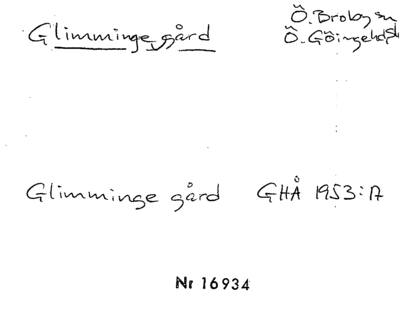 Glimminge gård
Ö. Broby sn
Ö. Göinge hd
Glimminge gård GHÅ 1953:17
Nr 16934